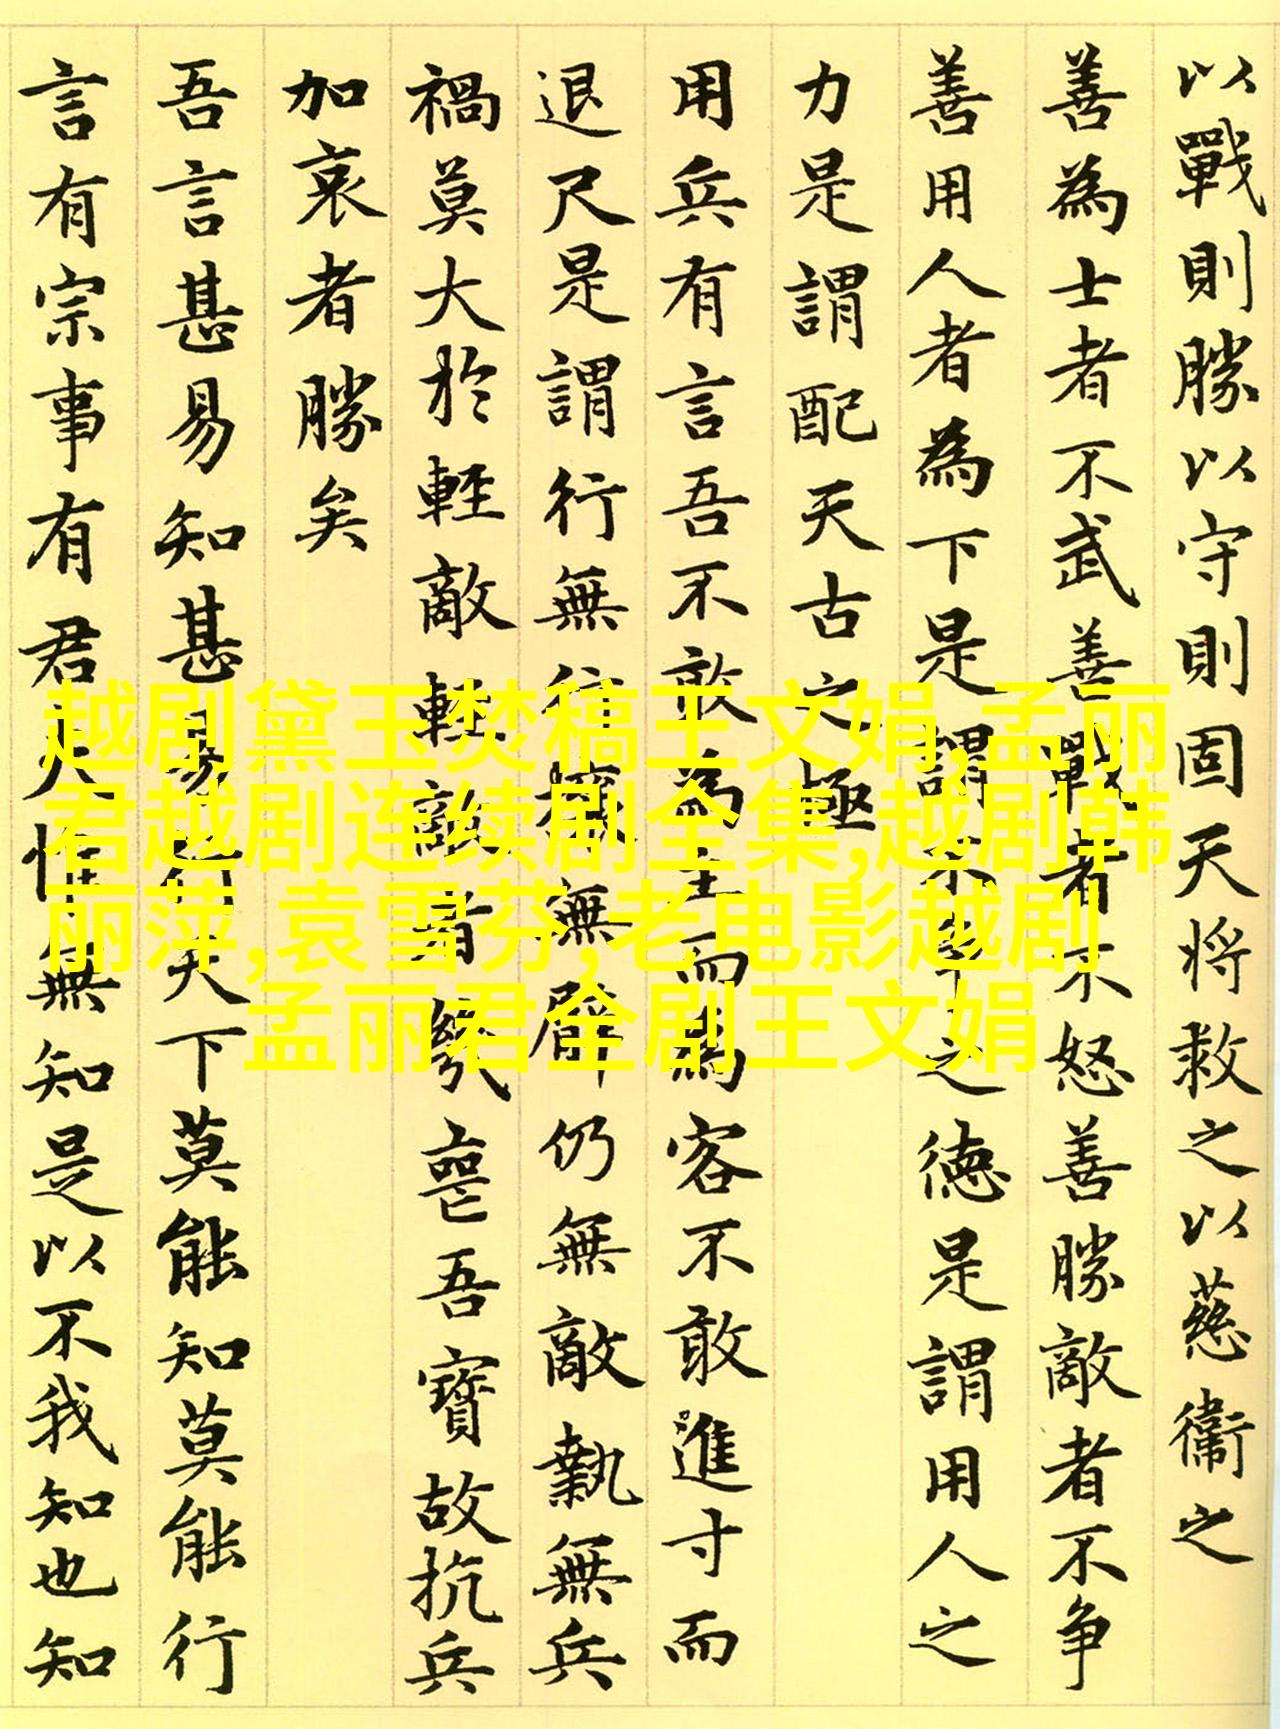 以戰則勝以守則固天将救之以慈衛之
善為士者不武善戰者不怒善勝敵者不争
善用人者為下是謂不争之德是謂用人之
力是謂配天古之極
用兵有言吾不敢為主而為客不敢進寸而
退尺是謂行無行攘無臂仍無敵執無兵
禍莫大於輕敵輕敵者幾喪吾寶故抗兵
加哀者勝矣
吾言甚易知甚易行天下莫能知莫能行
言有宗事有君夫惟無知是以不我知也知
越剧黛玉焚稿王文娟,孟丽
君越剧连续剧全集,越剧韩
丽萍,袁雪芬,老电影越剧
孟丽君全剧王文娟